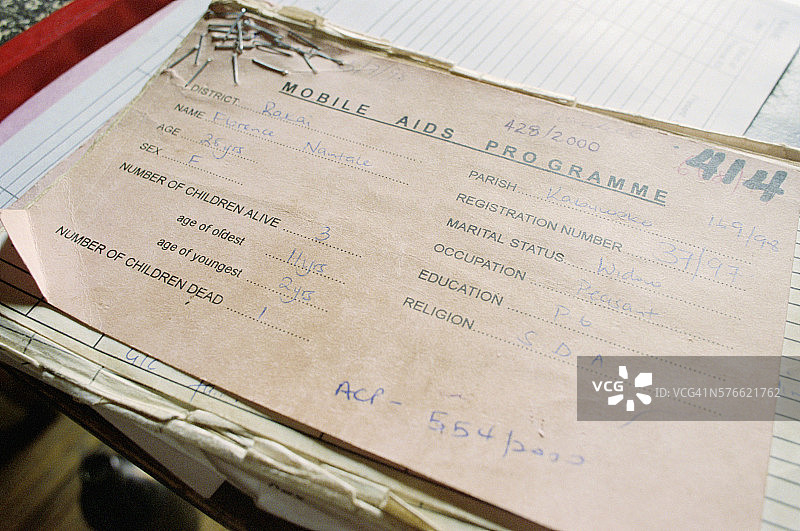 MOBILE AIDS PROGRAMME
428/2000
414
DISTRICT Rakai
NAME Florence Nantale
AGE 25yrs
SEX F
NUMBER OF CHILDREN ALIVE 3
age of oldest 11yrs
age of youngest 2yrs
NUMBER OF CHILDREN DEAD 1
PARISH 159/98
REGISTRATION NUMBER 37/97
MARITAL STATUS Widow
OCCUPATION Peasant
EDUCATION P6
RELIGION S.D.A
ACP - 554/2000
VCG
VCG.COM
VCG41N576621762